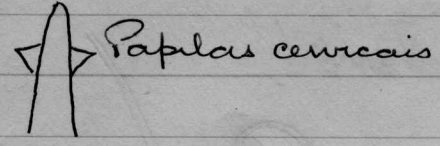 Papilas cervicais